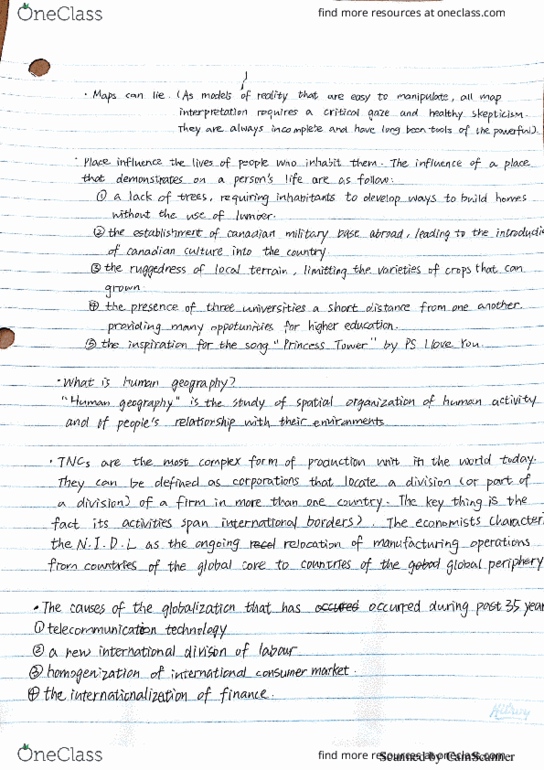 OneClass
find more resources at oneclass.com
· Maps can lie. (As models of reality that are easy to manipulate, all map
interpretation requires a critical gaze and healthy skepticism.
They are always incomplete and have long been tools of the powerful).
· Place influence the lives of people who inhabit them. The influence of a place
that demonstrates on a person's life are as follow:
① a lack of trees, requiring inhabitants to develop ways to build homes
without the use of lumber.
② the establishment of canadian military base abroad, leading to the introducti
of canadian culture into the country.
③ the ruggedness of local terrain, limitting the varieties of crops that can
grown.
④ the presence of three universities a short distance from one another.
providing many oppotunities for higher education.
⑤ the inspiration for the song "Princess Tower" by PS I love You.
· What is human geography?
"Human geography" is the study of spatial organization of human activity
and of people's relationship with their environments
· TNCs are the most complex form of production unit in the world today.
They can be defined as corporations that locate a division (or part of
a division) of a firm in more than one country. The key thing is the
fact its activities span international borders). The economists characteri
the N.I.D.L as the ongoing relocation of manufacturing operations
from countries of the global core to countries of the global periphery
· The causes of the globalization that has occurred during past 35 year
① telecommunication technology
② a new international divison of labour
③ homogenization of international consumer market.
④ the internationalization of finance.
OneClass
find more resources at oneclass.com
Scanned by CamScanner